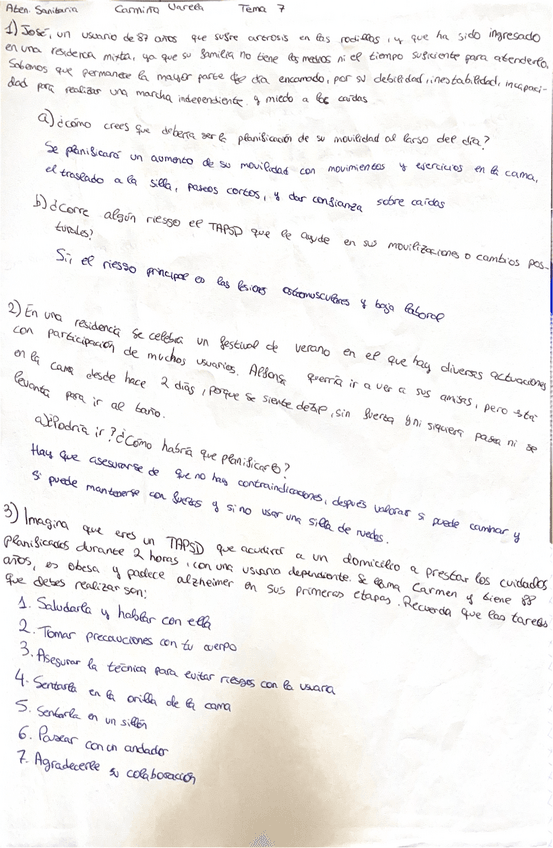 Aten. Sanitaria Carmiña Varela Tema 7
1) José, un usuario de 87 años que sufre artrosis en las rodillas, y que ha sido ingresado
en una residencia mixta, ya que su familia no tiene los medios ni el tiempo suficiente para atenderlo.
Sabemos que permanece la mayor parte del día encamado, por su debilidad, inestabilidad, incapaci-
dad para realizar una marcha independiente y miedo a las caídas
a) ¿cómo crees que debería ser la planificación de su movilidad al largo del día?
Se planificará un aumento de su movilidad con movimientos y ejercicios en la cama,
el traslado a la silla, paseos cortos, y dar confianza sobre caídas
b) ¿Corre algún riesgo el TAPSD que le ayude en sus movilizaciones o cambios pos-
turales?
Si, el riesgo principal es las lesiones osteomusculares y baja laboral
2) En una residencia se celebra un festival de verano en el que hay diversas actuaciones
con participación de muchos usuarios. Alfonso querría ir a ver a sus amigas, pero está
en la cama desde hace 2 días, porque se siente débil, sin fuerza y ni siquiera pasea ni se
levanta para ir al baño.
a) ¿Podría ir? ¿Cómo habría que planificarlo?
Hay que asegurarse de que no hay contraindicaciones, después valorar si puede caminar y
si puede mantenerse con fuerzas y si no usar una silla de ruedas.
3) Imagina que eres un TAPSD que acudirá a un domicilio a prestar los cuidados
planificados durante 2 horas, con una usuaria dependiente. Se llama Carmen y tiene 88
años, es obesa y padece alzheimer en sus primeras etapas. Recuerda que las tareas
que debes realizar son:
1. Saludarla y hablar con ella
2. Tomar precauciones con tu cuerpo
3. Asegurar la técnica para evitar riesgos con la usuaria
4. Sentarla en la orilla de la cama
5. Sentarla en un sillón
6. Pasear con un andador
7. Agradecerle su colaboración